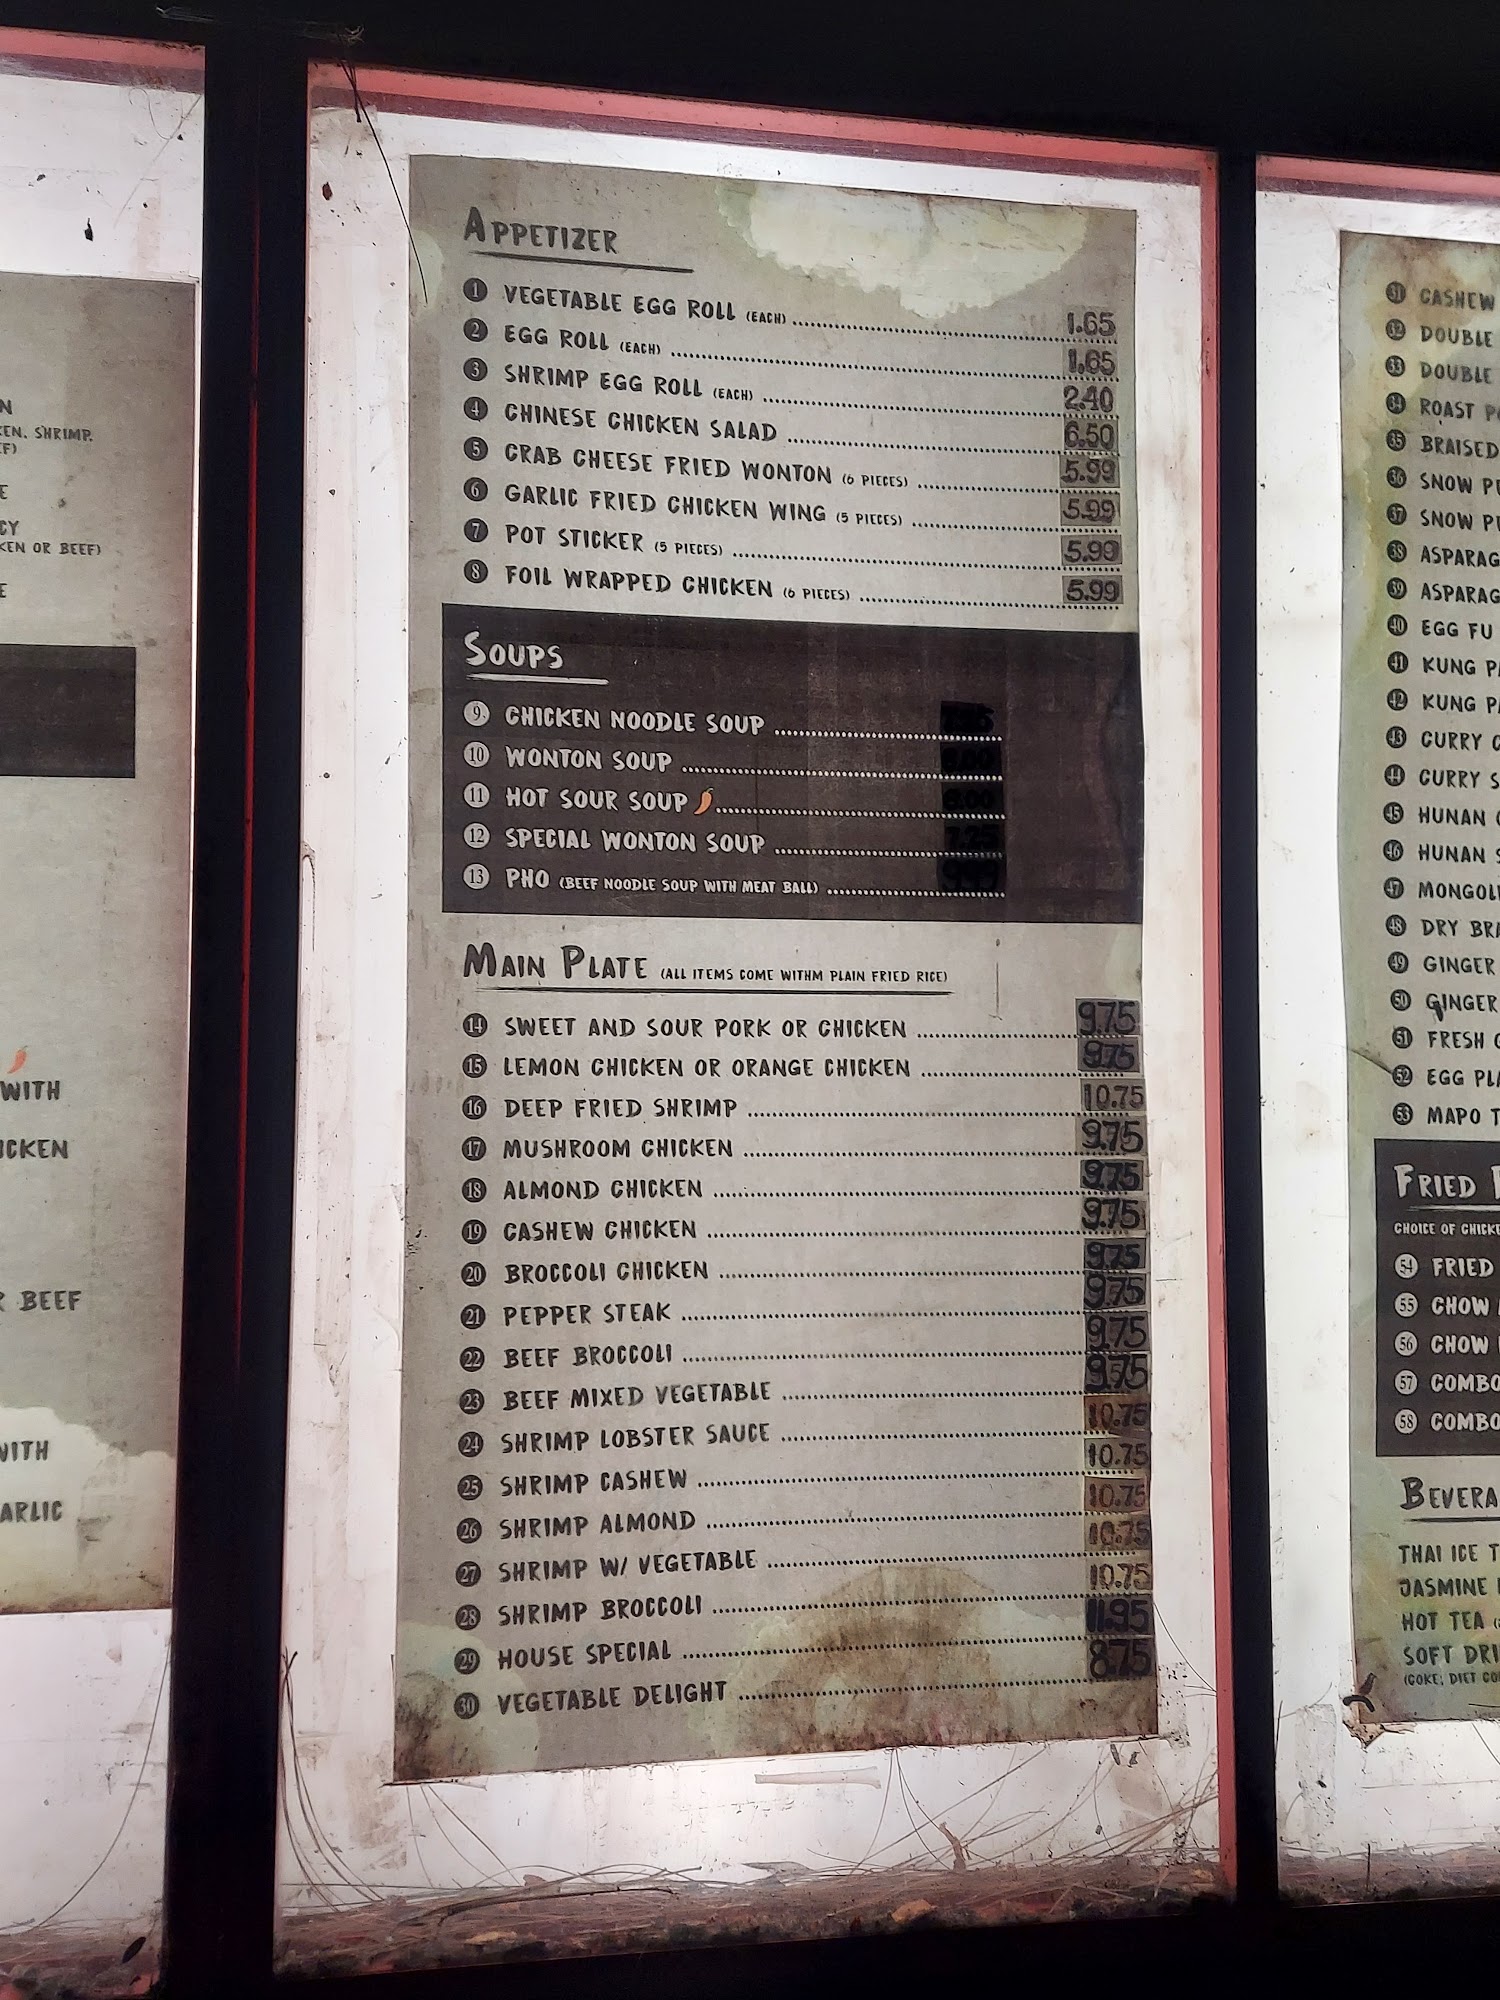 N
KEN, SHRIMP,
EF)
E
CY
KEN OR BEEF)
E
WITH
ICKEN
R BEEF
WITH
ARLIC
APPETIZER
1 VEGETABLE EGG ROLL (EACH) 1.65
2 EGG ROLL (EACH) 1.65
3 SHRIMP EGG ROLL (EACH) 2.40
4 CHINESE CHICKEN SALAD 6.50
5 CRAB CHEESE FRIED WONTON (6 PIECES) 5.99
6 GARLIC FRIED CHICKEN WING (5 PIECES) 5.99
7 POT STICKER (5 PIECES) 5.99
8 FOIL WRAPPED CHICKEN (6 PIECES) 5.99
SOUPS
9 CHICKEN NOODLE SOUP
10 WONTON SOUP
11 HOT SOUR SOUP
12 SPECIAL WONTON SOUP 7.25
13 PHO (BEEF NOODLE SOUP WITH MEAT BALL)
MAIN PLATE (ALL ITEMS COME WITHM PLAIN FRIED RICE)
14 SWEET AND SOUR PORK OR CHICKEN 9.75
15 LEMON CHICKEN OR ORANGE CHICKEN 9.75
16 DEEP FRIED SHRIMP 10.75
17 MUSHROOM CHICKEN 9.75
18 ALMOND CHICKEN 9.75
19 CASHEW CHICKEN 9.75
20 BROCCOLI CHICKEN 9.75
21 PEPPER STEAK 9.75
22 BEEF BROCCOLI 9.75
23 BEEF MIXED VEGETABLE 9.75
24 SHRIMP LOBSTER SAUCE 10.75
25 SHRIMP CASHEW 10.75
26 SHRIMP ALMOND 10.75
27 SHRIMP W/ VEGETABLE 10.75
28 SHRIMP BROCCOLI 10.75
29 HOUSE SPECIAL 11.95
30 VEGETABLE DELIGHT 8.75
31 CASHEW
32 DOUBLE
33 DOUBLE
34 ROAST P
35 BRAISED
36 SNOW P
37 SNOW P
38 ASPARAG
39 ASPARAG
40 EGG FU
41 KUNG PA
42 KUNG PA
43 CURRY C
44 CURRY S
45 HUNAN
46 HUNAN S
47 MONGOLI
48 DRY BRA
49 GINGER
50 GINGER
51 FRESH
52 EGG PLA
53 MAPO T
FRIED
CHOICE OF CHICKE
54 FRIED
55 CHOW
56 CHOW
57 COMBO
58 COMBO
BEVERA
THAI ICE T
JASMINE
HOT TEA
SOFT DRI
(COKE, DIET CO